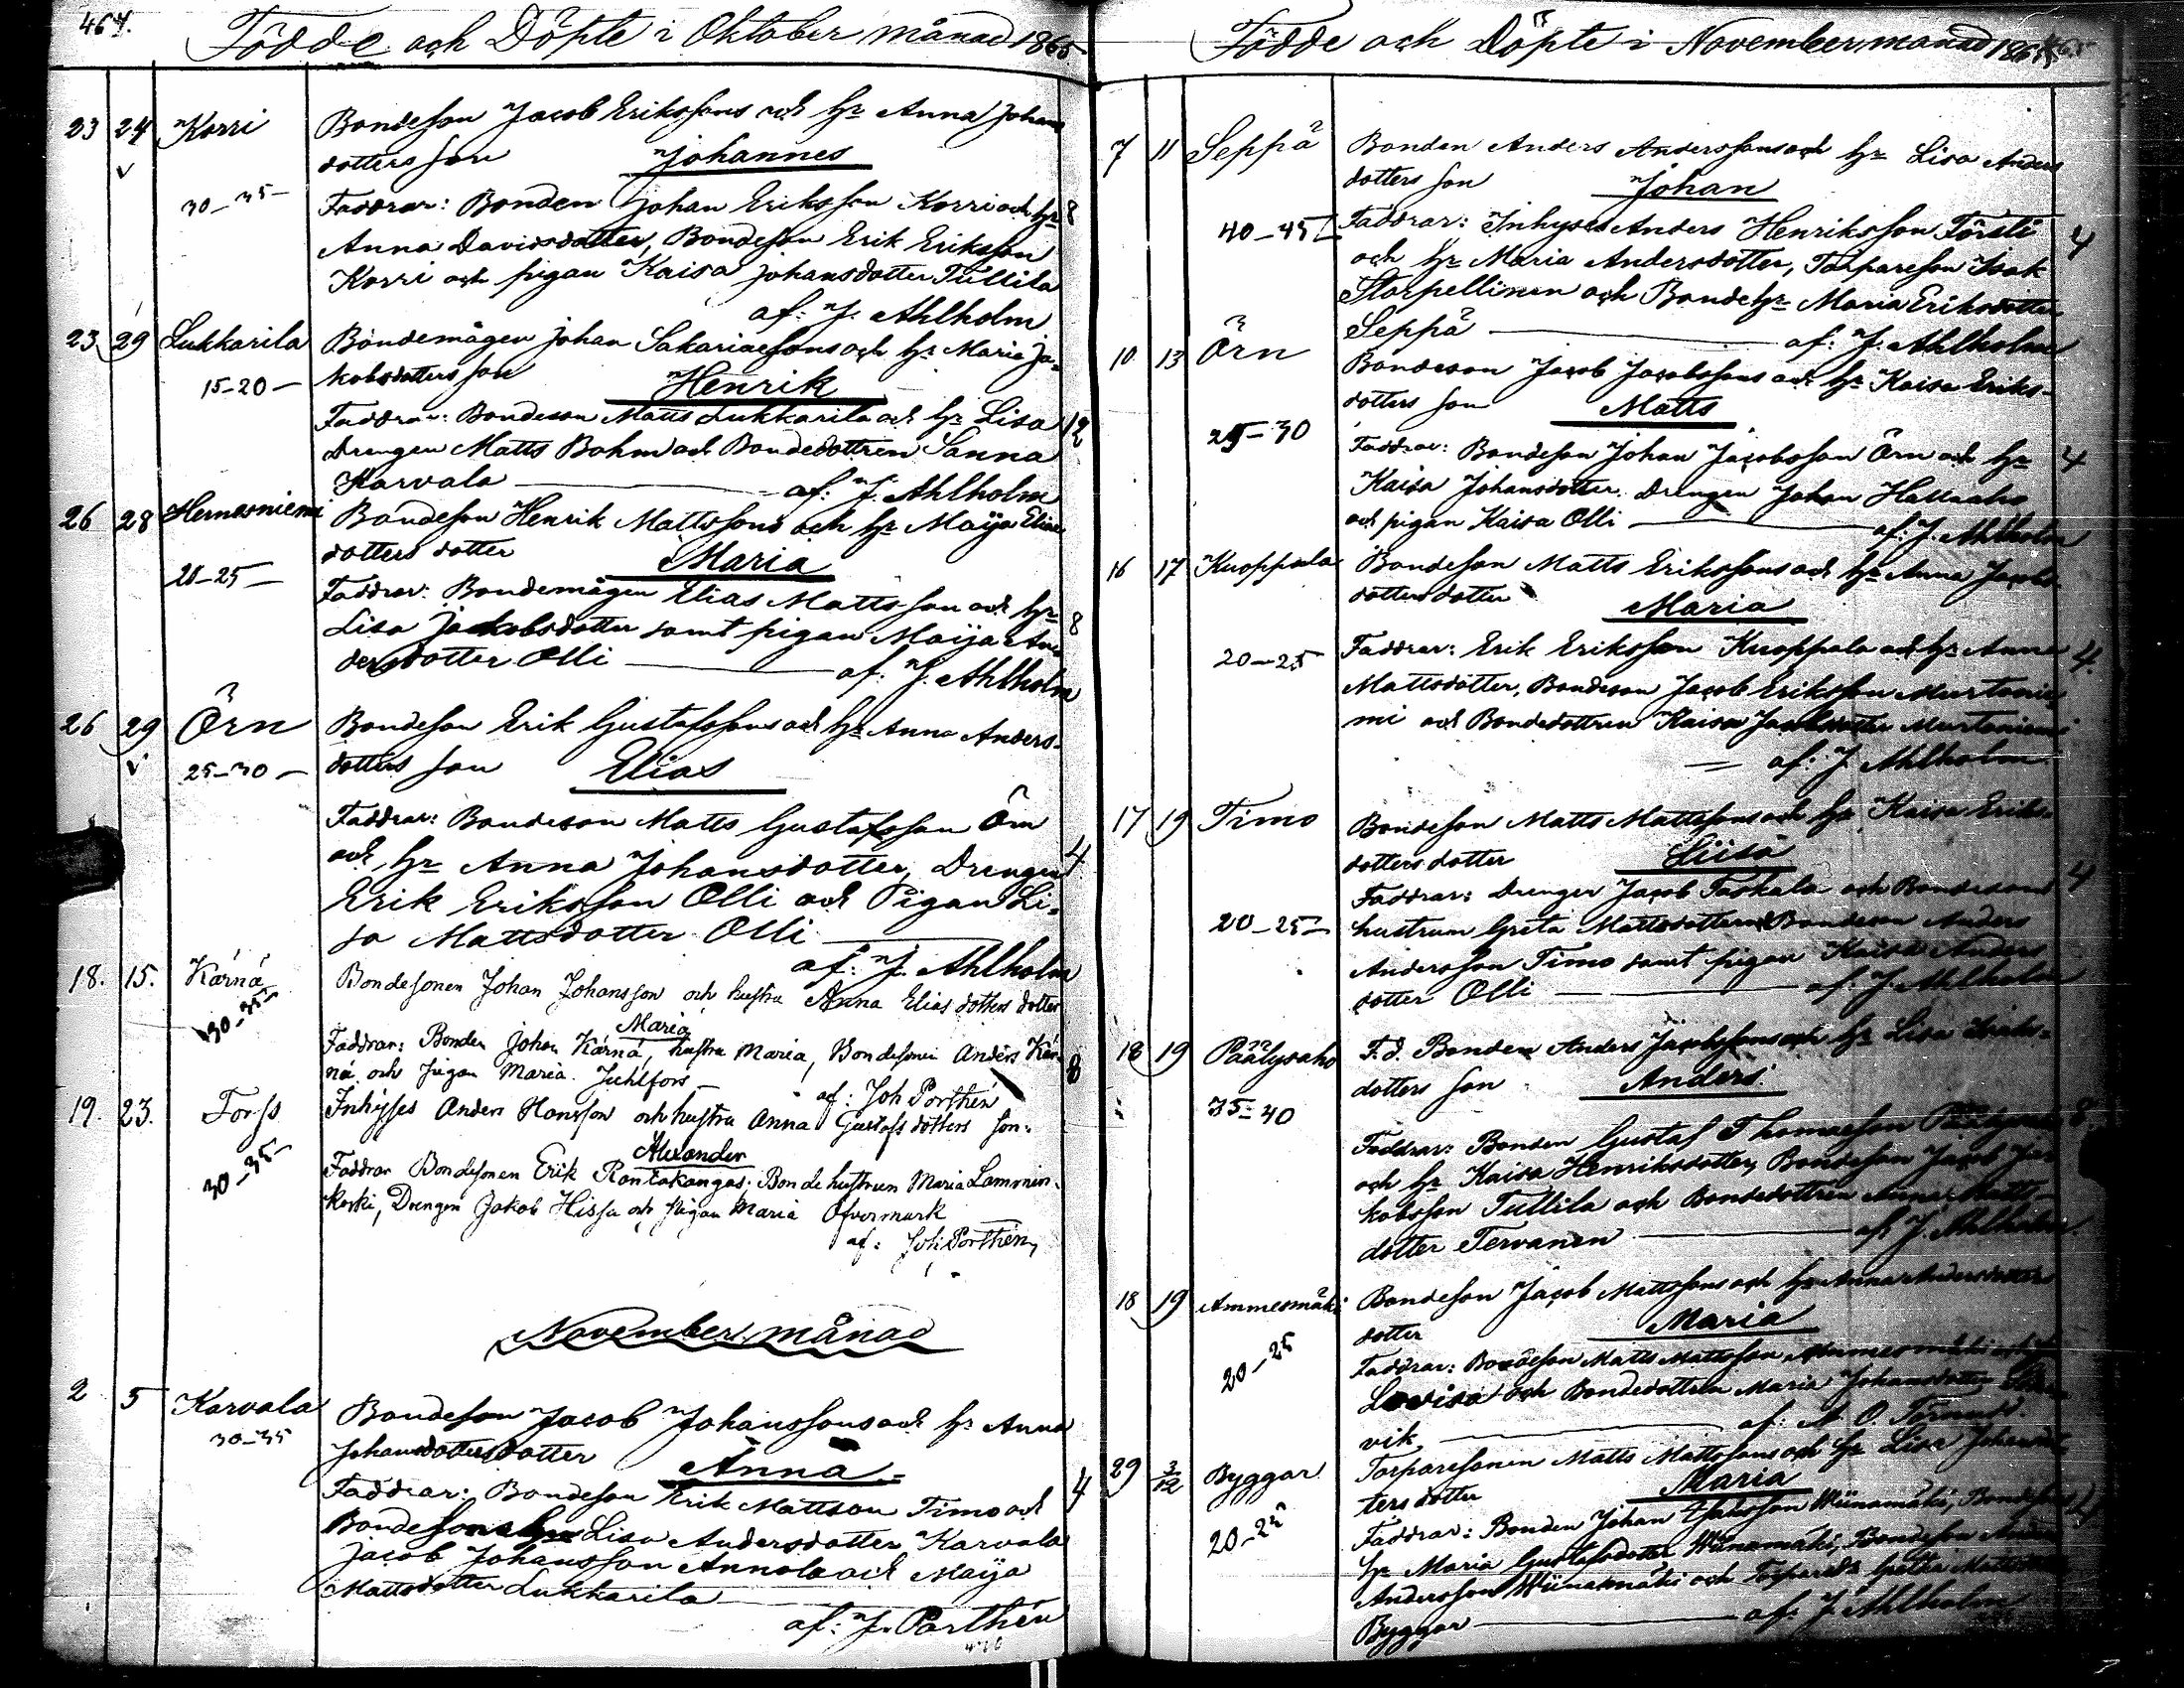 464.
Födde och Döpte i Oktober månad 1865.
23 24 Korri Bondeson Jacob Erikssons och hr Anna Johans
dotters son Johannes
30-35- Faddrar: Bonden Johan Eriksson Korri och hr 8
Anna Davidsdotter, Bondeson Erik Eriksson
Korri och pigan Kaisa Johansdotter Tullila
af: J. Ahlholm
23 29 Lukkarila Bondemågen Johan Sakariaesons och hr Maria Ja-
15-20- kobsdotters son Henrik
Faddrar: Bondeson Matts Lukkarila och hr Lisa 12
Drengen Matts Bohm och Bondedottren Sanna
Karvala af: J. Ahlholm
26 28 Hernesniemi Bondeson Henrik Mattssons och hr Maija Elias
dotters dotter Maria
20-25- Faddrar: Bondemågen Elias Mattsson och hr 8
Lisa Jackobsdotter samt pigan Maija An
dersdotter Olli af. J. Ahlholm
26 29 Örn Bondeson Erik Gustafssons och hr Anna Anders-
25-30- dotters son Elias
Faddrar: Bondeson Matts Gustafsson Örn
och hr Anna Johansdotter, Drengen 4
Erik Eriksson Olli och Pigan Li-
sa Mattsdotter Olli
af: J. Ahlholm
18. 15. Kärnä Bondesonen Johan Johansson och hustru Anna Elias dotters dotter
30-35- Maria
Faddrar: Bonden Johan Kärnä, hustru Maria, Bondesonen Anders Kär- 8
nä och pigan Maria Juhlfors- af: Joh Porthén
19. 23. Forss Inhyses Anders Hansson och hustru Anna Gustafs dotters son.
Alexander
30-35- Faddrar Bondesonen Erik Rantakangas. Bonde hustrun Maria Lammin-
koski, Drengen Jakob Hissa och Pigan Maria Öfvermark
af: Joh. Porthén,
November månad
2 5 Karvala Bondeson Jacob Johanssons och hr Anna
30-35 Johansdotters dotter Anna
Faddrar: Bondeson Erik Mattson Timo och 4
Bondesons hr Lisa Andersdotter Karvala
Jacob Johansson Annola och Maija
Mattsdotter Lukkarila
af: J. Porthén
Födde och Döpte i November månad 1865
7 11 Seppä Bonden Anders Anderssons och hr Lisa Anders
dotters son Johan
40-45 Faddrar: Inhyses Anders Henriksson Försti 4
och hr Maria Andersdotter, Torpareson Isak
Starpellinen och Bondehr Maria Eriksdotter
Seppä af: J. Ahlholm
10 13 Örn Bondeson Jacob Jacobssons och hr Kaisa Eriks-
dotters son Matts
25-30 Faddrar: Bondeson Johan Jacobsson Örn och hr 4
Kaisa Johansdotter. Drengen Johan
och pigan Kaisa Olli af. J. Ahlholm
16 17 Kuoppala Bondeson Matts Erikssons och hr Anna Jacobs-
dotters dotter Maria
20-25 Faddrar: Erik Eriksson Kuoppala och hr Anna 4.
Mattsdotter, Bondeson Jacob Eriksson Murtonie-
mi och Bondedottren Kaisa Jacobsdotter Murtoniemi
af: J. Ahlholm
17 19 Timo Bondeson Matts Mattssons och hr Kaisa Eriks-
dotters dotter Liisa
Faddrar: Drenger Jacob Taskala och Bondesons 4
20-25- hustrun Greta Mattsdotter Bondeson Anders
Andersson Timo samt pigan Kaisa Anders
dotter Olli af. J. Ahlholm
18 19 Päälysaho F.d. Bonden Anders Jacobssons och hr Lisa
dotters son Anders
35-40
Faddrar: Bonden Gustaf Thomasson 8
och hr Kaisa Henriksdotter, Bondeson Jacob Ja-
kobsson Tullila och Bondedottren Anna Matts-
dotter Tervanen af J. Ahlholm
18 19 Ammesmäki Bondeson Jacob Mattssons och hr Anna Andersdotters
dotter Maria
20-25 Faddrar: Bondeson Matts Mattsson Ammesmäki och hr
Lovisa och Bondedottren Maria Johansdotter
vik af:
29 3/12 Byggar Torparesonen Matts Mattssons och hr Lisa Johansdot
ters dotter Maria
20-25 Faddrar: Bonden Johan Wiinamäki, Bondesons 4
hr Maria Gustafsdotter Wiinamäki, Bondeson Anders
Andersson Wiinamäki och Greta Mattsdotter
Byggar af: J. Ahlholm